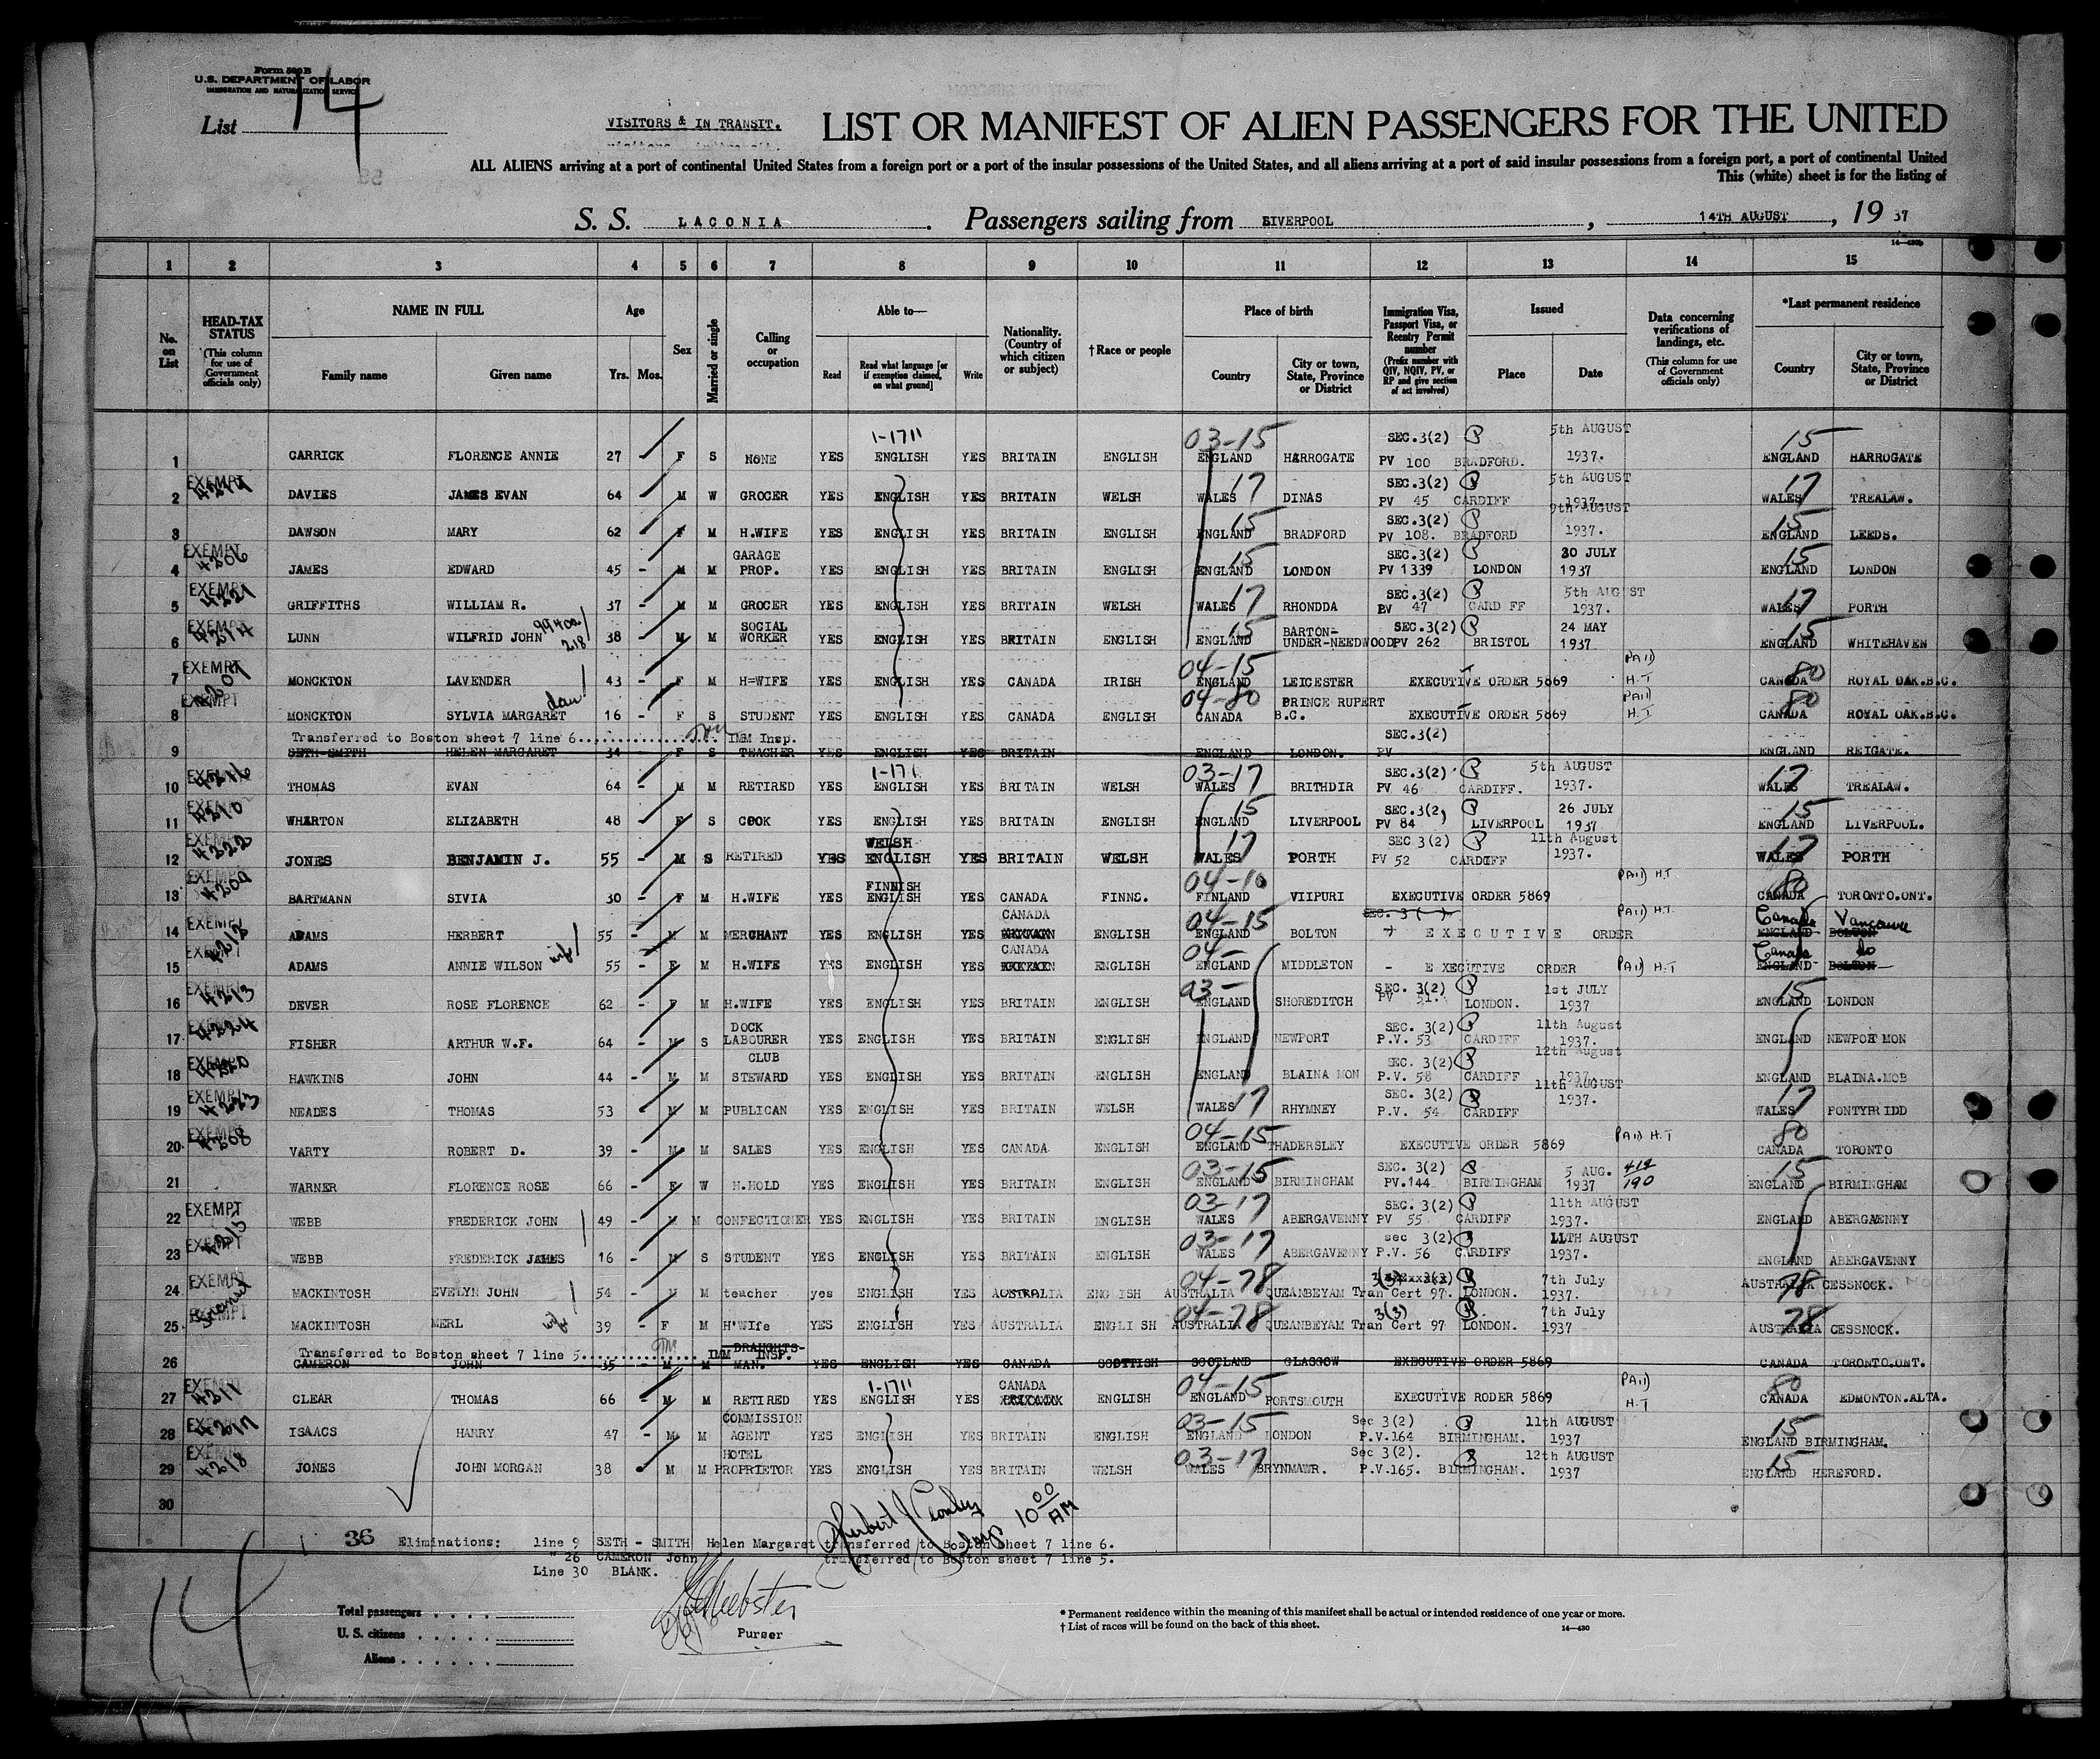 Form 500 B
U.S. DEPARTMENT OF LABOR
IMMIGRATION AND NATURALIZATION SERVICE
List 14
VISITORS & IN TRANSIT.
LIST OR MANIFEST OF ALIEN PASSENGERS FOR THE UNITED
ALL ALIENS arriving at a port of continental United States from a foreign port or a port of the insular possessions of the United States, and all aliens arriving at a port of said insular possessions from a foreign port, a port of continental United
This (white) sheet is for the listing of
S. S. LACONIA . Passengers sailing from LIVERPOOL , 14TH AUGUST , 19 37
1 2 3 4 5 6 7 8 9 10 11 12 13 14 15
No. on List
HEAD-TAX STATUS (This column for use of Government officials only)
NAME IN FULL Family name Given name
Age Yrs. Mos.
Sex
Married or single
Calling or occupation
Able to— Read Read what language [or if exemption claimed, on what ground] Write
Nationality. (Country of which citizen or subject)
† Race or people
Place of birth Country City or town, State, Province or District
Immigration Visa, Passport Visa, or Reentry Permit number (Prefix number with QIV, NQIV, PV, or RP and give section of act involved)
Issued Place Date
Data concerning verifications of landings, etc. (This column for use of Government officials only)
*Last permanent residence Country City or town, State, Province or District
1-1711 03-15 SEC.3(2) P 5th AUGUST 15
1 CARRICK FLORENCE ANNIE 27 F S NONE YES ENGLISH YES BRITAIN ENGLISH ENGLAND HARROGATE PV 100 BRADFORD. 1937. ENGLAND HARROGATE
EXEMPT 17 SEC.3(2) P 5th AUGUST 17
2 DAVIES JAMES EVAN 64 M W GROCER YES ENGLISH YES BRITAIN WELSH WALES DINAS PV 45 CARDIFF 1937. WALES TREALAW.
15 SEC.3(2) P 9th AUGUST 15
3 DAWSON MARY 62 F M H.WIFE YES ENGLISH YES BRITAIN ENGLISH ENGLAND BRADFORD PV 108. BRADFORD 1937. ENGLAND LEEDS.
EXEMPT 4206 GARAGE 15 SEC.3(2) P 30 JULY 15
4 JAMES EDWARD 45 - M M PROP. YES ENGLISH YES BRITAIN ENGLISH ENGLAND LONDON PV 1339 LONDON 1937 ENGLAND LONDON
EXEMPT 4221 17 SEC.3(2) P 5th AUGUST 17
5 GRIFFITHS WILLIAM R. 37 - M M GROCER YES ENGLISH YES BRITAIN WELSH WALES RHONDDA PV 47 CARD FF 1937. WALES PORTH
EXEMPT 4214 99402/218 SOCIAL 15 BARTON- SEC.3(2) P 24 MAY 15
6 LUNN WILFRID JOHN 38 - M M WORKER YES ENGLISH YES BRITAIN ENGLISH ENGLAND UNDER-NEEDWOOD PV 262 BRISTOL 1937 ENGLAND WHITEHAVEN
EXEMPT 04-15 PAID 80
7 MONCKTON LAVENDER 43 - F M H=WIFE YES ENGLISH YES CANADA IRISH ENGLAND LEICESTER EXECUTIVE ORDER 5869 H.T CANADA ROYAL OAK.B.C.
EXEMPT dau 04-80 PRINCE RUPERT PAID 80
8 MONCKTON SYLVIA MARGARET 16 - F S STUDENT YES ENGLISH YES CANADA ENGLISH CANADA B.C. EXECUTIVE ORDER 5869 H.T CANADA ROYAL OAK.B.C.
Transferred to Boston sheet 7 line 6.................. IMM Insp. SEC.3(2)
9 SETH-SMITH HELEN MARGARET 34 F S TEACHER YES ENGLISH YES BRITAIN ENGLAND LONDON. PV ENGLAND REIGATE.
EXEMPT 4216 1-171 03-17 SEC.3(2) P 5th AUGUST 17
10 THOMAS EVAN 64 - M M RETIRED YES ENGLISH YES BRITAIN WELSH WALES BRITHDIR PV 46 CARDIFF. 1937. WALES TREALAW.
EXEMPT 4210 15 SEC.3(2) P 26 JULY 15
11 WHARTON ELIZABETH 48 - F S COOK YES ENGLISH YES BRITAIN ENGLISH ENGLAND LIVERPOOL PV 84 LIVERPOOL 1937 ENGLAND LIVERPOOL.
EXEMPT 4222 WELSH 17 SEC 3(2) P 11th August 17
12 JONES BENJAMIN J. 55 - M S RETIRED YES ENGLISH YES BRITAIN WELSH WALES PORTH PV 52 CARDIFF 1937. WALES PORTH
EXEMPT 4209 FINNISH 04-10 PAID H.T 80
13 BARTMANN SIVIA 30 - F M H.WIFE YES ENGLISH YES CANADA FINNS. FINLAND VIIPURI EXECUTIVE ORDER 5869 CANADA TORONTO.ONT.
EXEMPT CANADA 04-15 SEC. 3 ( ) PAID H.T. Canada Vancouver
14 ADAMS HERBERT 55 - M M MERCHANT YES ENGLISH YES ENGLISH ENGLAND BOLTON EXECUTIVE ORDER ENGLAND BOLTON
EXEMPT 4212 wife CANADA 04- Canada do
15 ADAMS ANNIE WILSON 55 - F M H.WIFE YES ENGLISH YES ENGLISH ENGLAND MIDDLETON - EXECUTIVE ORDER PAID H.T ENGLAND BOLTON
EXEMPT 4213 03- SEC. 3(2) P 1st JULY 15
16 DEVER ROSE FLORENCE 62 - F M H.WIFE YES ENGLISH YES BRITAIN ENGLISH ENGLAND SHOREDITCH PV 51. LONDON. 1937 ENGLAND LONDON
EXEMPT 4224 DOCK SEC. 3(2) P 11th August
17 FISHER ARTHUR W.F. 64 - M S LABOURER YES ENGLISH YES BRITAIN ENGLISH ENGLAND NEWPORT P.V. 53 CARDIFF 1937. ENGLAND NEWPORT MON
EXEMPT 4220 CLUB SEC. 3(2) P 12th August
18 HAWKINS JOHN 44 - M M STEWARD YES ENGLISH YES BRITAIN ENGLISH ENGLAND BLAINA MON P.V. 58 CARDIFF 1937 ENGLAND BLAINA.MOB
EXEMPT 4223 17 SEC. 3(2) P 11th AUGUST 17
19 NEADES THOMAS 53 M M PUBLICAN YES ENGLISH YES BRITAIN WELSH WALES RHYMNEY P.V. 54 CARDIFF 1937. WALES PONTYPRIDD
EXEMPT 4208 04-15 PAID H.T 80
20 VARTY ROBERT D. 39 - M M SALES YES ENGLISH YES CANADA ENGLISH ENGLAND THADERSLEY EXECUTIVE ORDER 5869 CANADA TORONTO
03-15 SEC. 3(2) P 5 AUG. 412 15
21 WARNER FLORENCE ROSE 66 - F W H.HOLD YES ENGLISH YES BRITAIN ENGLISH ENGLAND BIRMINGHAM PV.144 BIRMINGHAM 1937 190 ENGLAND BIRMINGHAM
EXEMPT 03-17 SEC. 3(2) P 11th AUGUST
22 WEBB FREDERICK JOHN 49 - M M CONFECTIONER YES ENGLISH YES BRITAIN ENGLISH WALES ABERGAVENNY PV 55 CARDIFF 1937. ENGLAND ABERGAVENNY
EXEMPT 4215 03-17 sec 3(2) P 11TH AUGUST
23 WEBB FREDERICK JAMES 16 - M S STUDENT YES ENGLISH YES BRITAIN ENGLISH WALES ABERGAVENNY P.V. 56 CARDIFF 1937. ENGLAND ABERGAVENNY
EXEMPT 04-78 3(3) P 7th July 78
24 MACKINTOSH EVELYN JOHN 54 - M M teacher yes ENGLISH YES AUSTRALIA ENGLISH AUSTRALIA QUEANBEYAM Tran Cert 97. LONDON. 1937. AUSTRALIA CESSNOCK.
EXEMPT Transit wife 04-78 3(3) P 7th July 78
25 MACKINTOSH MERL 39 - F M H'WIfe YES ENGLISH YES AUSTRALIA ENGLISH AUSTRALIA QUEANBEYAM Tran Cert 97 LONDON. 1937 AUSTRALIA CESSNOCK.
Transferred to Boston sheet 7 line 5............... IMM INSP. DRAUGHTS-
26 CAMERON JOHN 35 - M M MAN. YES ENGLISH YES CANADA SCOTTISH SCOTLAND GLASGOW EXECUTIVE ORDER 5869 CANADA TORONTO.ONT.
EXEMPT 4211 1-1711 CANADA 04-15 PAID 80
27 CLEAR THOMAS 66 - M M RETIRED YES ENGLISH YES ENGLISH ENGLAND PORTSMOUTH EXECUTIVE RODER 5869 H.T CANADA EDMONTON.ALTA.
EXEMPT 4217 COMMISSION 03-15 Sec 3(2) P 11th AUGUST 15
28 ISAACS HARRY 47 - M M AGENT YES ENGLISH YES BRITAIN ENGLISH ENGLAND LONDON P.V.164 BIRMINGHAM. 1937 ENGLAND BIRMINGHAM.
EXEMPT 4218 HOTEL 03-17 Sec 3(2). P 12th AUGUST 15
29 JONES JOHN MORGAN 38 M M PROPRIETOR YES ENGLISH YES BRITAIN WELSH WALES BRYNMAWR. P.V.165. BIRMINGHAM. 1937 ENGLAND HEREFORD.
30
Herbert J 10 00 AM
36 Eliminations: line 9 SETH - SMITH Helen Margaret transferred to Boston sheet 7 line 6.
" 26 CAMERON John transferred to Boston sheet 7 line 5.
Line 30 BLANK.
14
Total passengers . . . .
U. S. citizens . . . . .
Aliens . . . . . .
Webster
Purser
* Permanent residence within the meaning of this manifest shall be actual or intended residence of one year or more.
† List of races will be found on the back of this sheet.
14—430